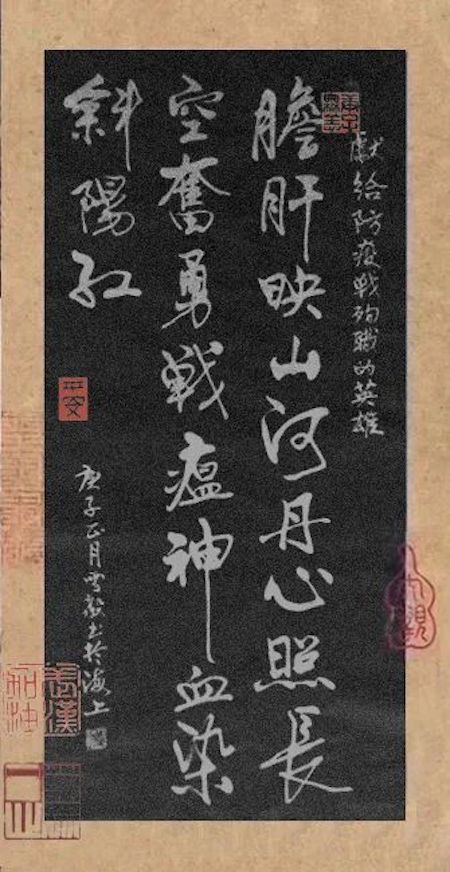 獻給防疫戰殉職的英雄
膽肝映山河丹心照長
空奮勇戰瘟神血染
斜陽紅
庚子正月雪书於海上
武漢
加油